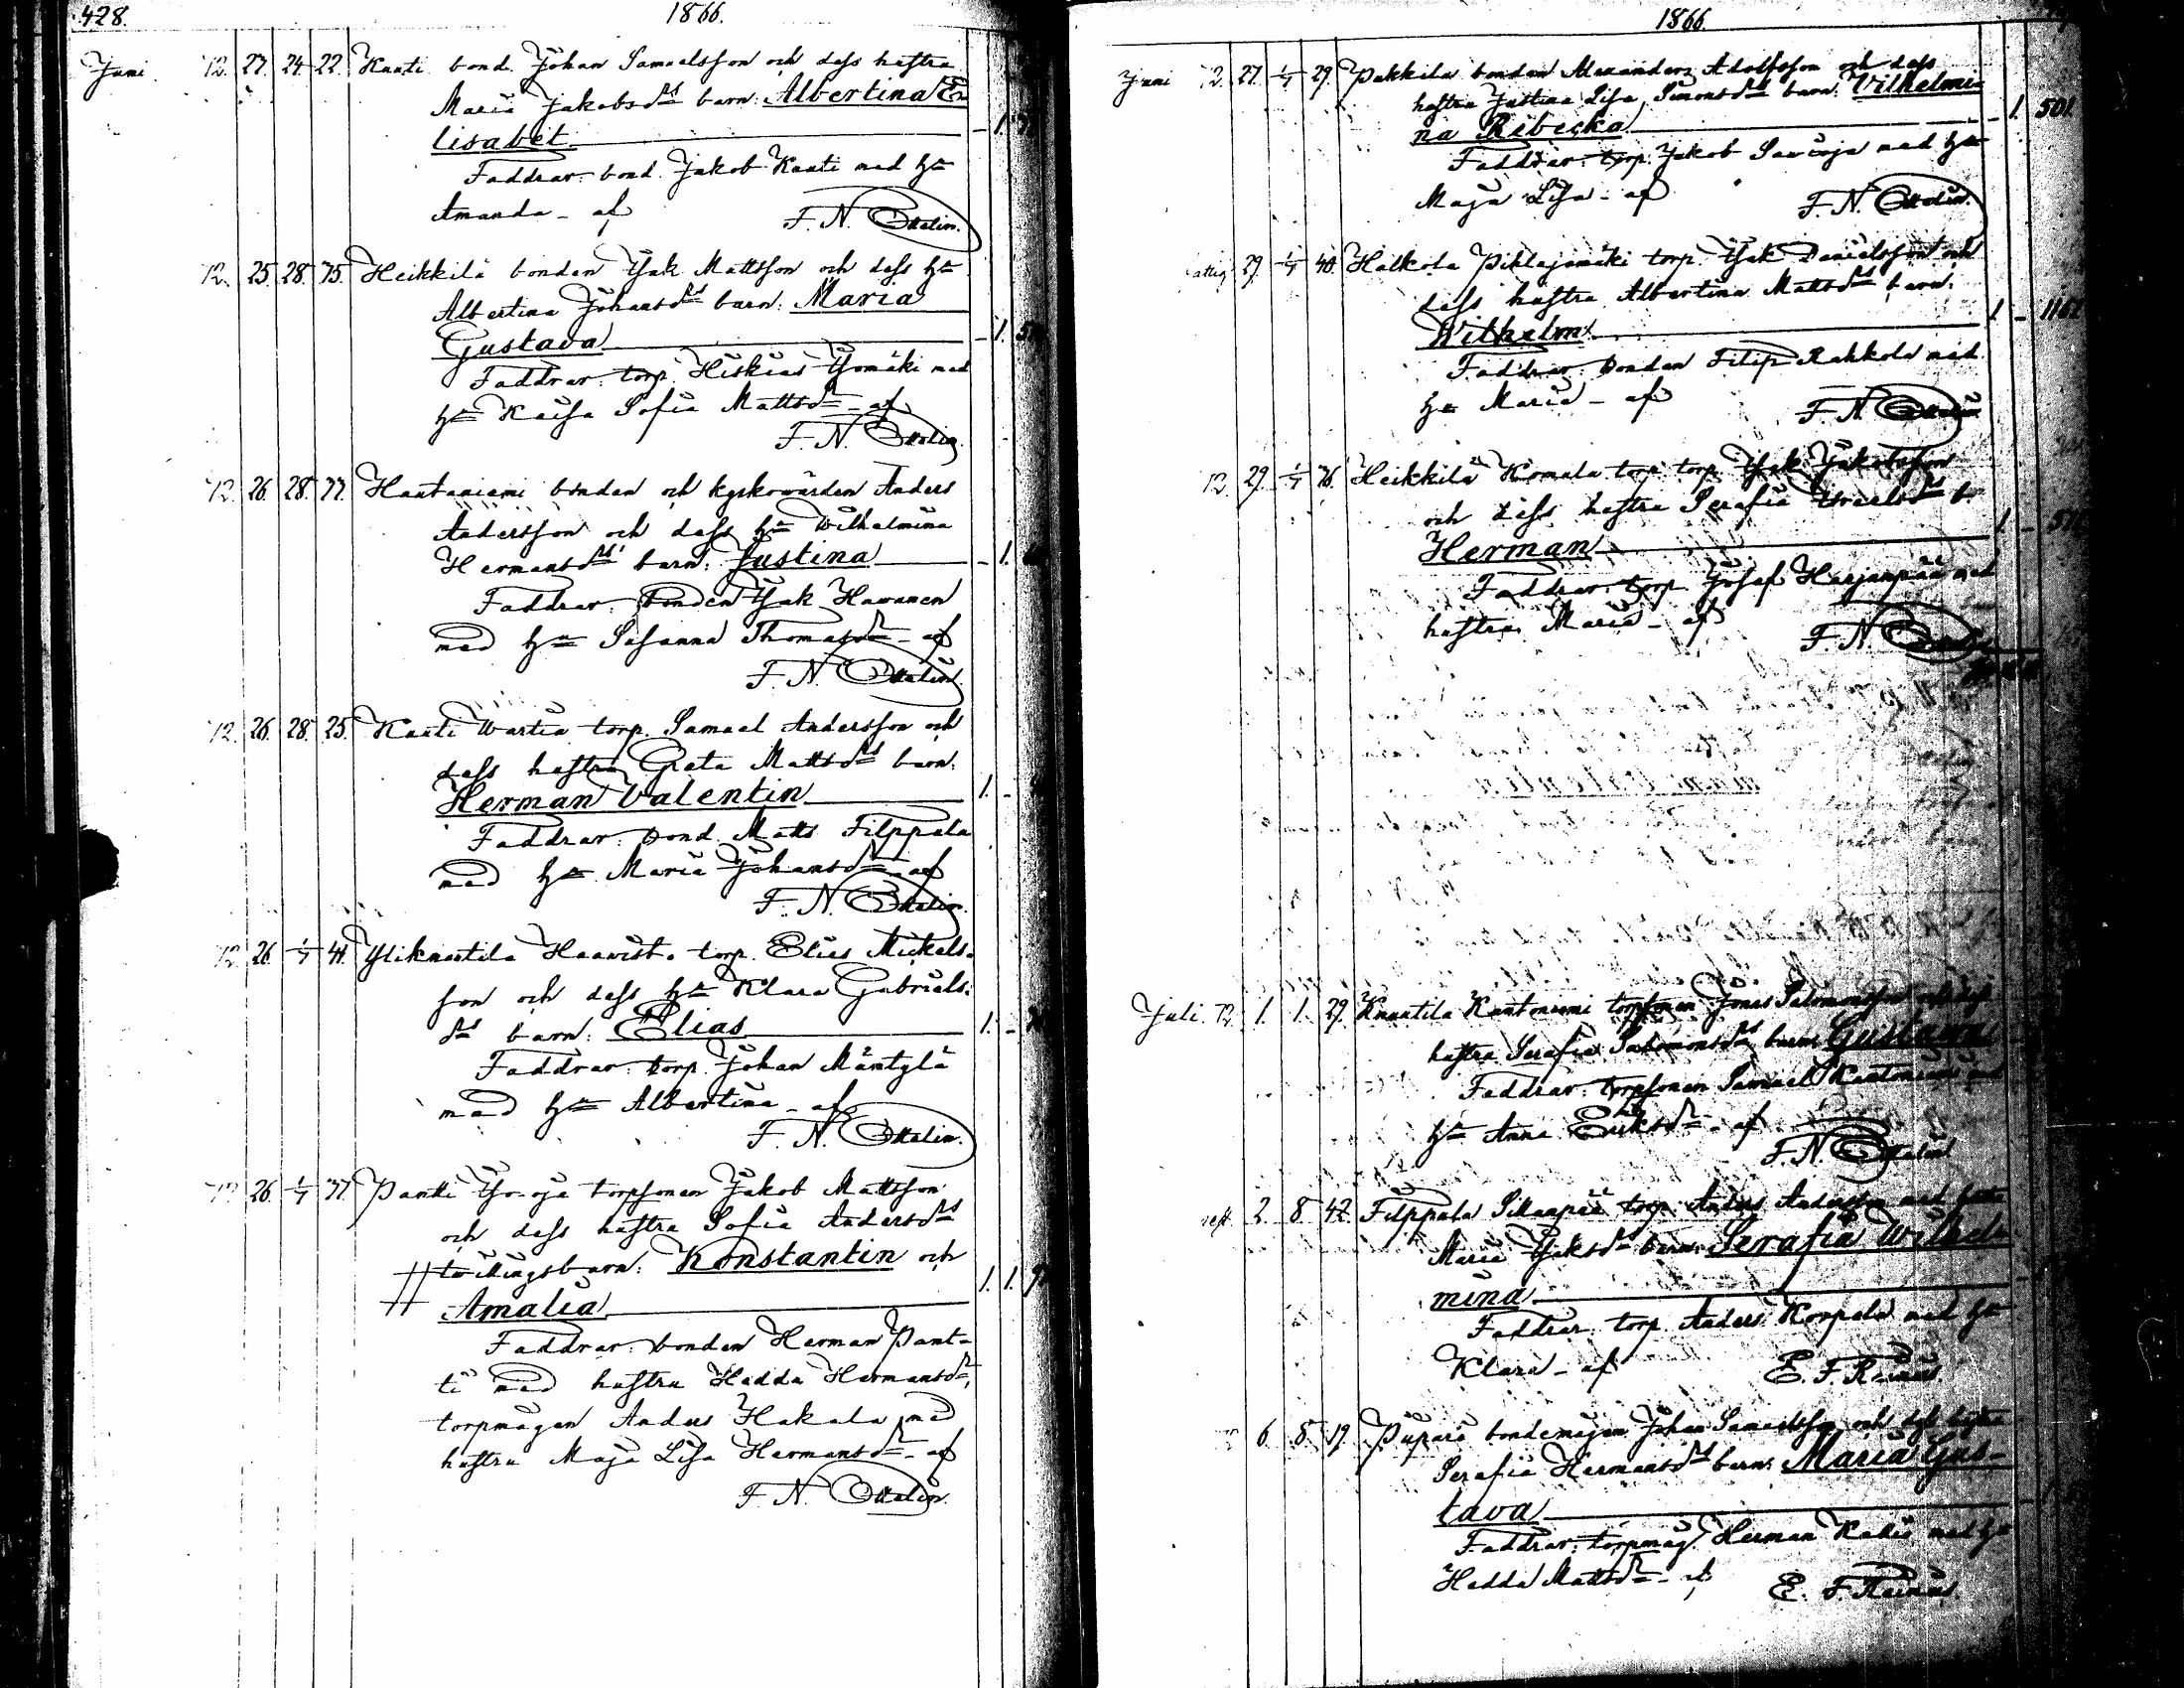 428.
1866.
Juni 12. 27. 24. 22. Kauti bond. Johan Samuelsson och dess hustru
Maria Jakobsdr barn: Albertina E-
lisabet
Faddrar: bond. Jakob Kauti med hu
Amanda - af F. N. Ottelin.
12. 25. 28. 35. Heikkilä bonden Isak Mattsson och dess hu
Albertina Johansdr barn: Maria
Gustava
Faddrar: torp. Hiskias Isomäki med
hu Kaisa Sofia Mattsdr - af
F. N. Ottelin.
12. 26. 28. 37. Hautaniemi bonden och kyrkowärden Anders
Andersson och dess hu Wilhelmina
Hermansdr barn: Justina
Faddrar: bonden Isak Hawanen
med hu Susanna Thomasdr - af
F. N. Ottelin.
12. 26. 28. 25. Kauti Wartia torp. Samuel Andersson och
dess hustru Greta Mattsdr barn:
Herman Valentin
Faddrar: bond. Matts Filppula
med hu Maria Johansdr - af
F. N. Ottelin.
12. 26. 1/7 41. Yliknuutila Haavisto torp. Elias Mickels-
son och dess hu Klara Gabriels-
dr barn: Elias
Faddrar: torp. Johan Mäntylä
med hu Albertina - af
F. N. Ottelin.
12. 26. 1/7 37. Pantti torpsonen Jakob Mattsson
och dess hustru Sofia Andersdr
twillingsbarn: Konstantin och
Amalia
Faddrar: bonden Herman Pant-
ti med hustru Hedda Hermansdr,
torpmågen Anders Hakala med
hustru Maja Lisa Hermansdr - af
F. N. Ottelin.
1866.
Juni 12. 27. 1/7 29. Pukkila bonden Alexander Adolfsson och dess
hustru Justina Lisa Simonsdr barn: Wilhelmi-
na Rebecka 1. 501.
Faddrar: torp. Jakob med hu
Maja Lisa - af F. N. Ottelin.
29. 1/7 40. Halkola Pihlajamäki torp. Isak Danielsson och
dess hustru Albertina Mattsdr barn:
Wilhelm
Faddrar: bonden Filip Rahkola med
hu Maria - af F. N. Ottelin.
12. 29. 1/7 36. Heikkilä Komula torp. torp. Isak Jakobsson
och dess hustru Serafia Israelsdr b.
Herman
Faddrar: torp. Josef Harjunpää med
hustru Maria - af F. N. Ottelin.
Juli 12. 1. 1. 29. Knuutila Kautoniemi torpsonen Jonas Salomonsson och dess
hustru Serafia Salomonsdr barn: Gustava
Faddrar: torpsonen Samuel Kautoniemi med
hu Anna Eriksdr - af
F. N. Ottelin
2. 8. 42. Filppula Sillanpää torp. Anders Andersson med hustru
Maria Isaksdr barn: Serafia Wilhel-
mina
Faddrar: torp. Anders Korpela med hu
Klara - af E. F. Reinius.
6. 8. 19. Pupara bondemågen Johan Samuelsson och dess hustru
Serafia Hermansdr barn: Maria Gus-
tava
Faddrar: torpmåg. Herman med hu
Hedda Mattsdr - af E. F. Reinius.